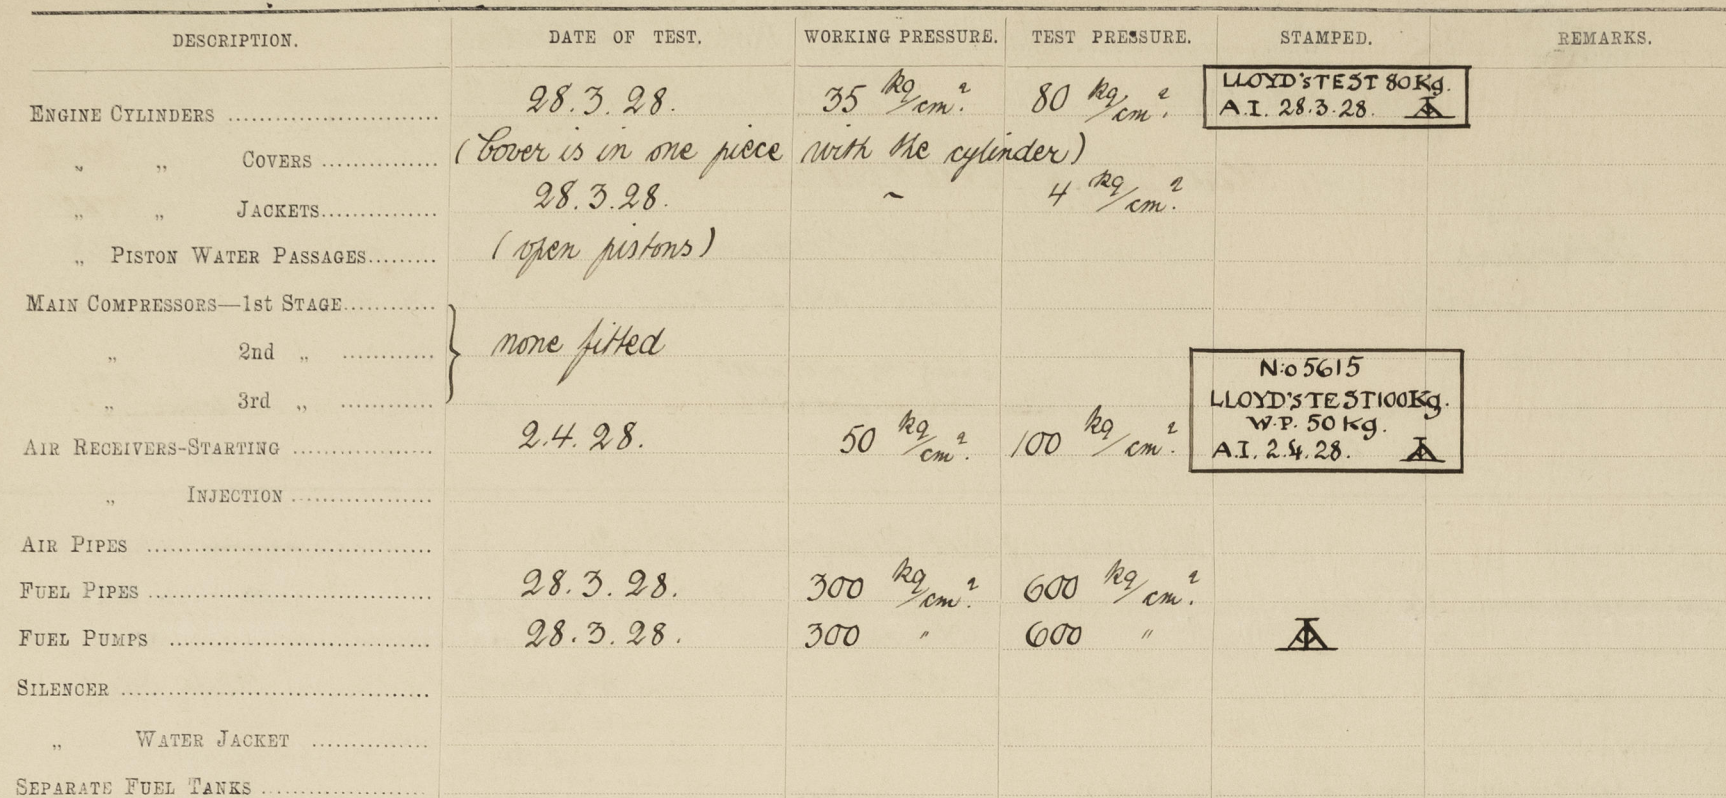 DESCRIPTION. DATE OF TEST. WORKING PRESSURE. TEST PRESSURE. STAMPED. REMARKS.
ENGINE CYLINDERS 28.3.28. 35 kg/cm². 80 kg/cm².
LLOYD'S TEST 80Kg.
A.I. 28.3.28.
„ „ COVERS (Cover is in one piece with the cylinder)
„ „ JACKETS 28.3.28. ~ 4 kg/cm².
„ PISTON WATER PASSAGES (open pistons)
MAIN COMPRESSORS—1st STAGE
„ 2nd „ none fitted
„ 3rd „
AIR RECEIVERS-STARTING 2.4.28. 50 kg/cm². 100 kg/cm².
N:o 5615
LLOYD'S TEST 100Kg.
W.P. 50 Kg.
A.I. 2.4.28.
„ INJECTION
AIR PIPES
FUEL PIPES 28.3.28. 300 kg/cm². 600 kg/cm².
FUEL PUMPS 28.3.28. 300 " 600 "
SILENCER
„ WATER JACKET
SEPARATE FUEL TANKS